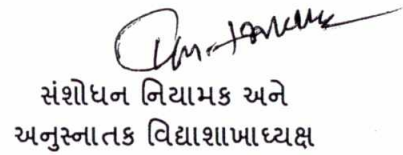 સંશોધન નિયામક અને
અનુસ્નાતક વિદ્યાશાખાધ્યક્ષ